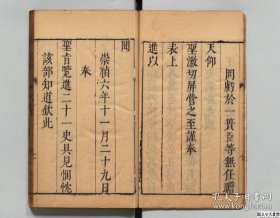 閎虧於一簣臣等無任瞻
天仰
聖激切屏營之至謹奉
表上
進以
聞
崇禎六年十一月二十九日
奉
聖旨覽進二十一史具見悃忱
該部知道欽此